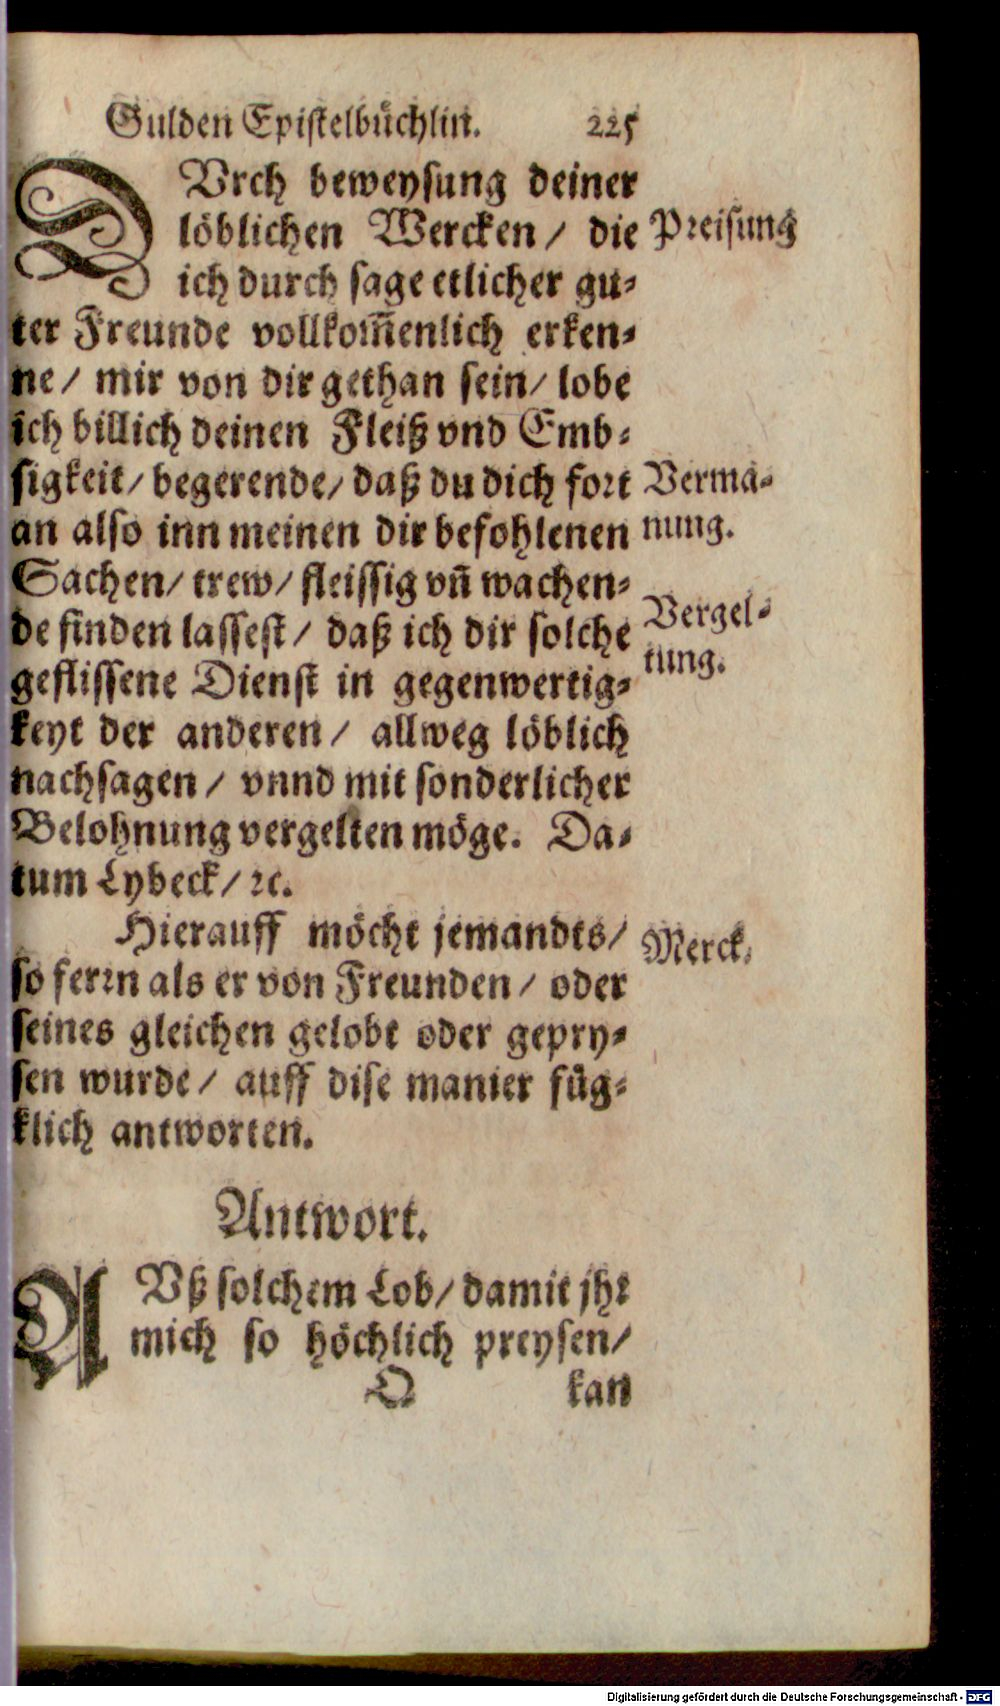 Gulden Epistelbuͤchlin. 225
DVrch beweysung deiner
löblichen Wercken / die
ich durch sage etlicher gu⸗
ter Freunde vollkom̃enlich erken⸗
ne / mir von dir gethan sein / lobe
ich billich deinen Fleiß vnd Emb⸗
sigkeit / begerende / daß du dich fort
an also inn meinen dir befohlenen
Sachen / trew / fleissig vñ wachen⸗
de finden lassest / daß ich dir solche
geflissene Dienst in gegenwertig⸗
keyt der anderen / allweg löblich
nachsagen / vnnd mit sonderlicher
Belohnung vergelten möge. Da⸗
tum Lybeck / ꝛc.
Preisung
Verma⸗
nung.
Vergel⸗
tung.
Hierauff möcht jemandts /
so ferrn als er von Freunden / oder
seines gleichen gelobt oder gepry⸗
sen wurde / auff dise manier füg⸗
klich antworten.
Merck.
Antwort.
AVß solchem Lob / damit jhr
mich so höchlich preysen /
O kan
Digitalisierung gefördert durch die Deutsche Forschungsgemeinschaft - DFG